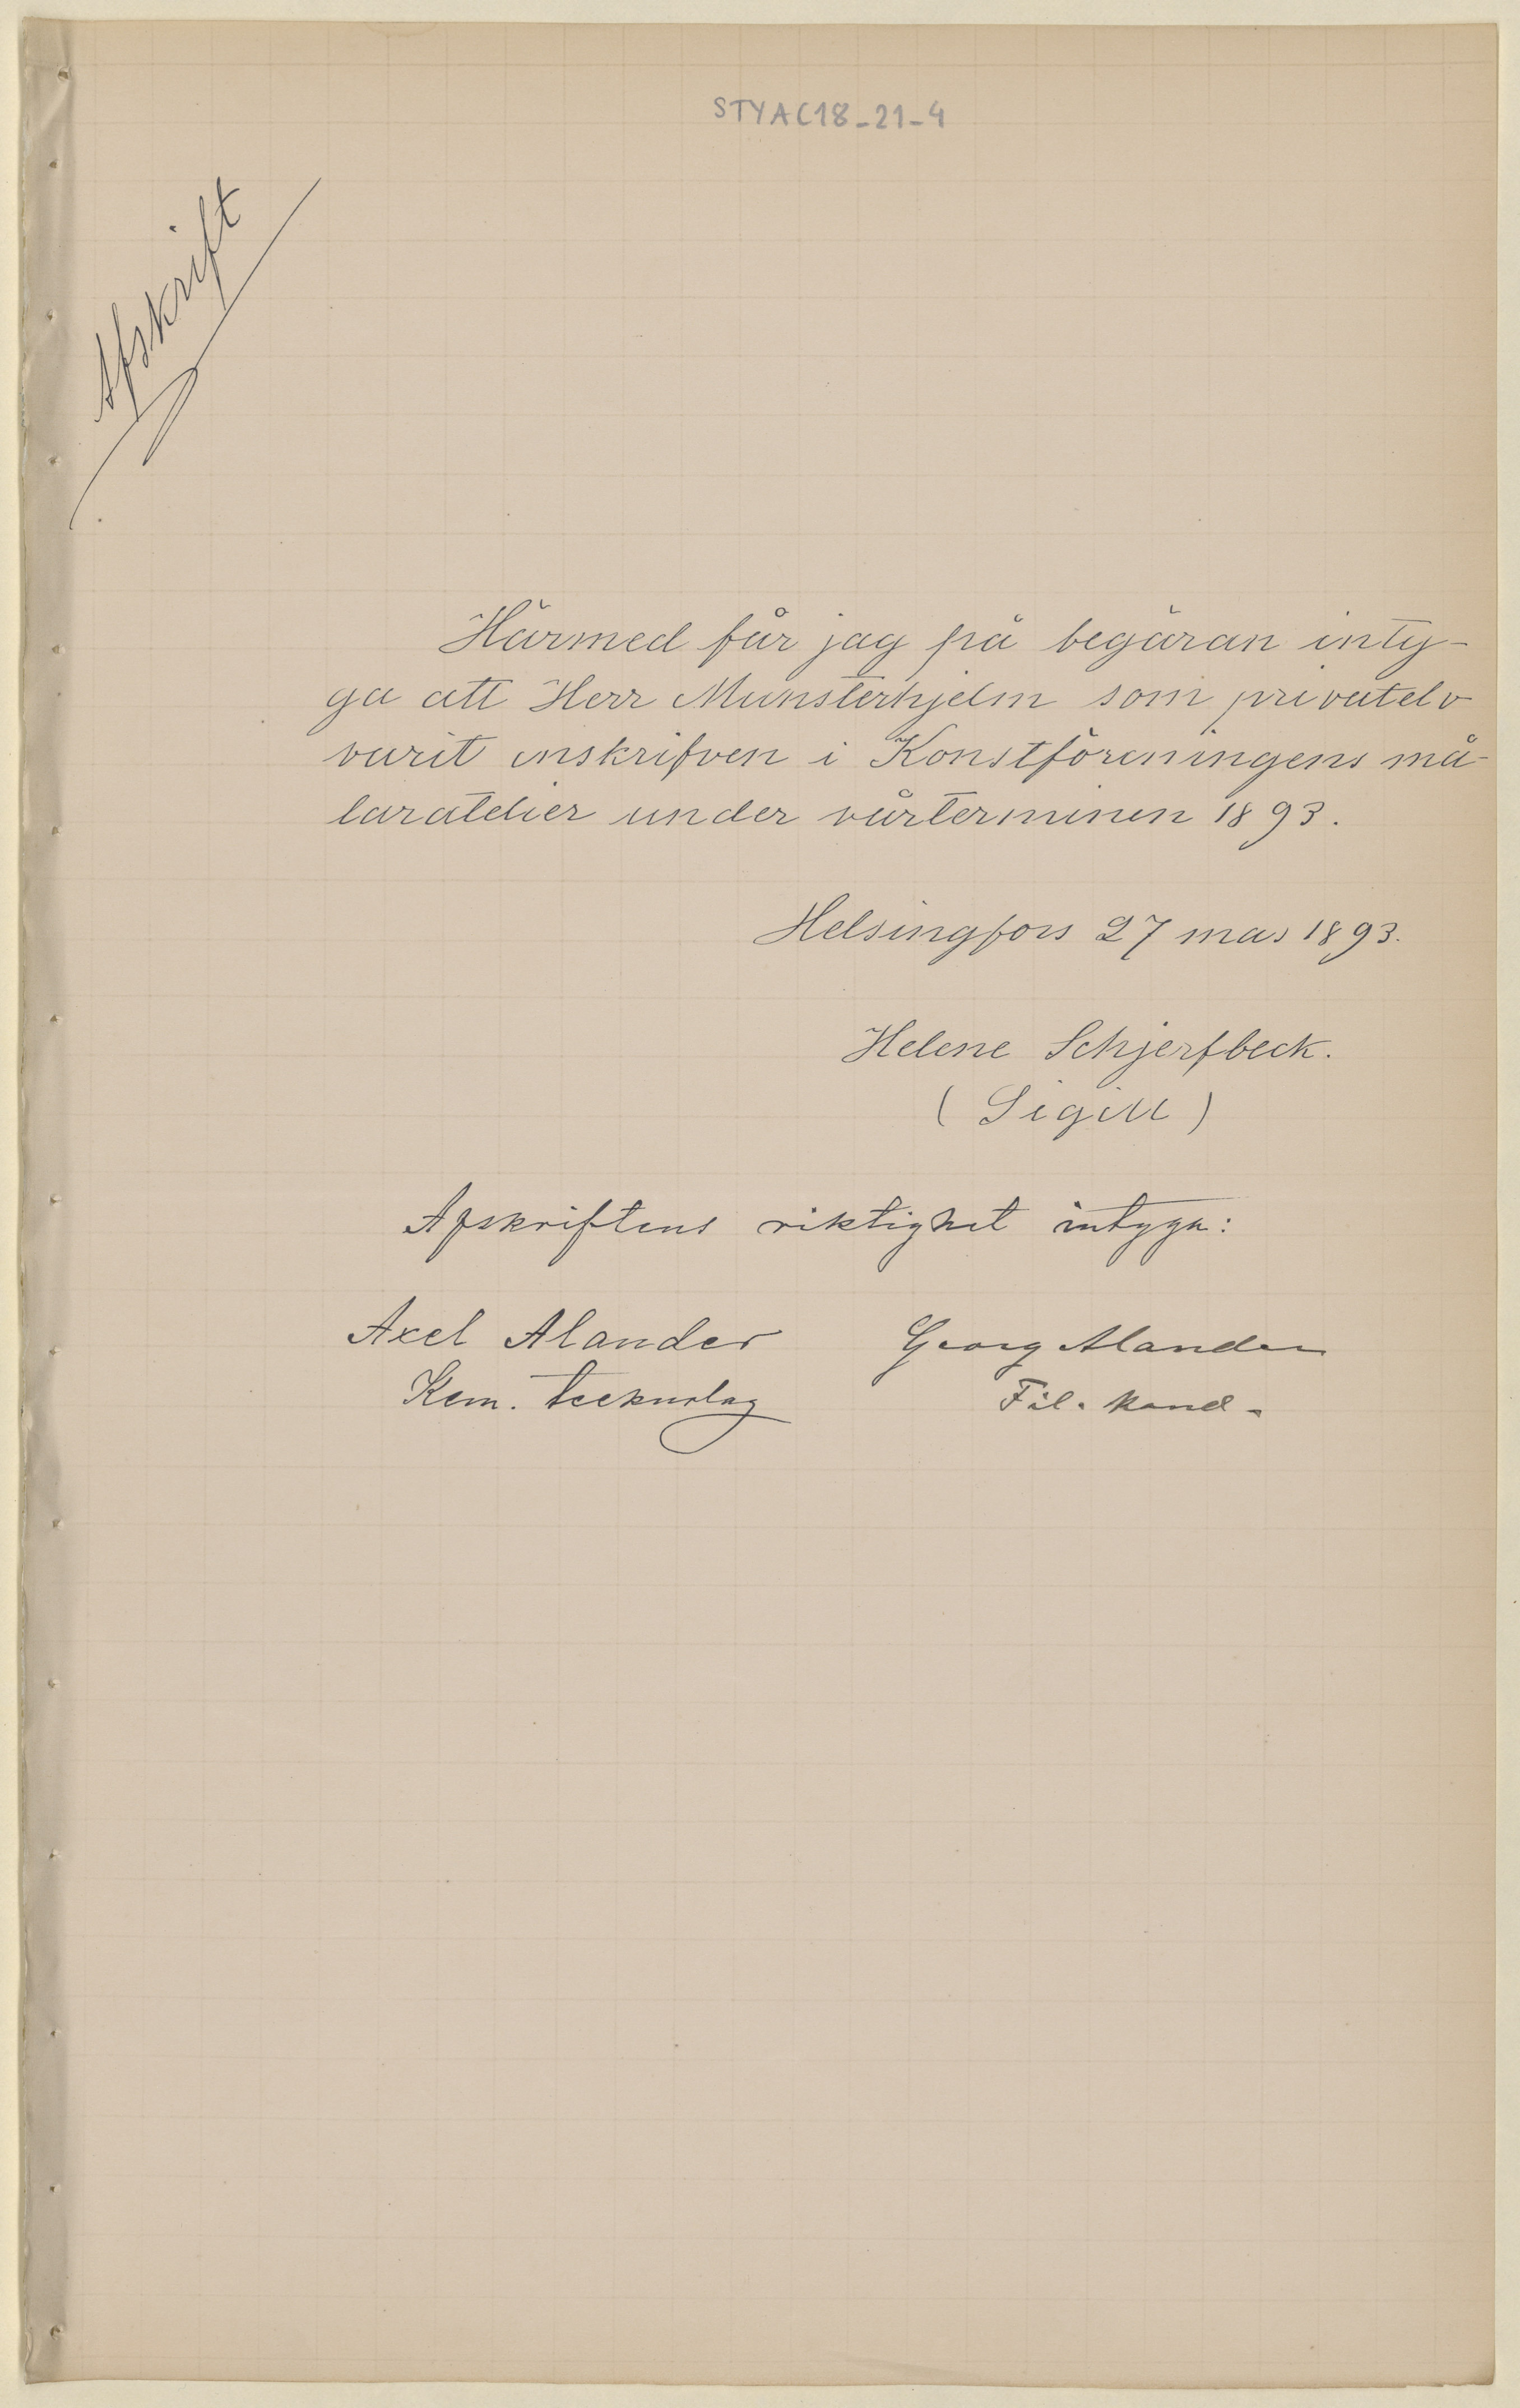 STYAC18_21_4
Afskrift
Härmed får jag på begäran inty-
ga att Herr Munsterhjelm som privatelv
varit inskrifven i Konstföreningens må-
laratelier under vårterminen 1893.
Helsingfors 27 maj 1893.
Helene Schjerfbeck.
(Sigill)
Afskriftens riktighet intyga:
Axel Alander Georg Alander
Kem. teeknolog Fil. kand.